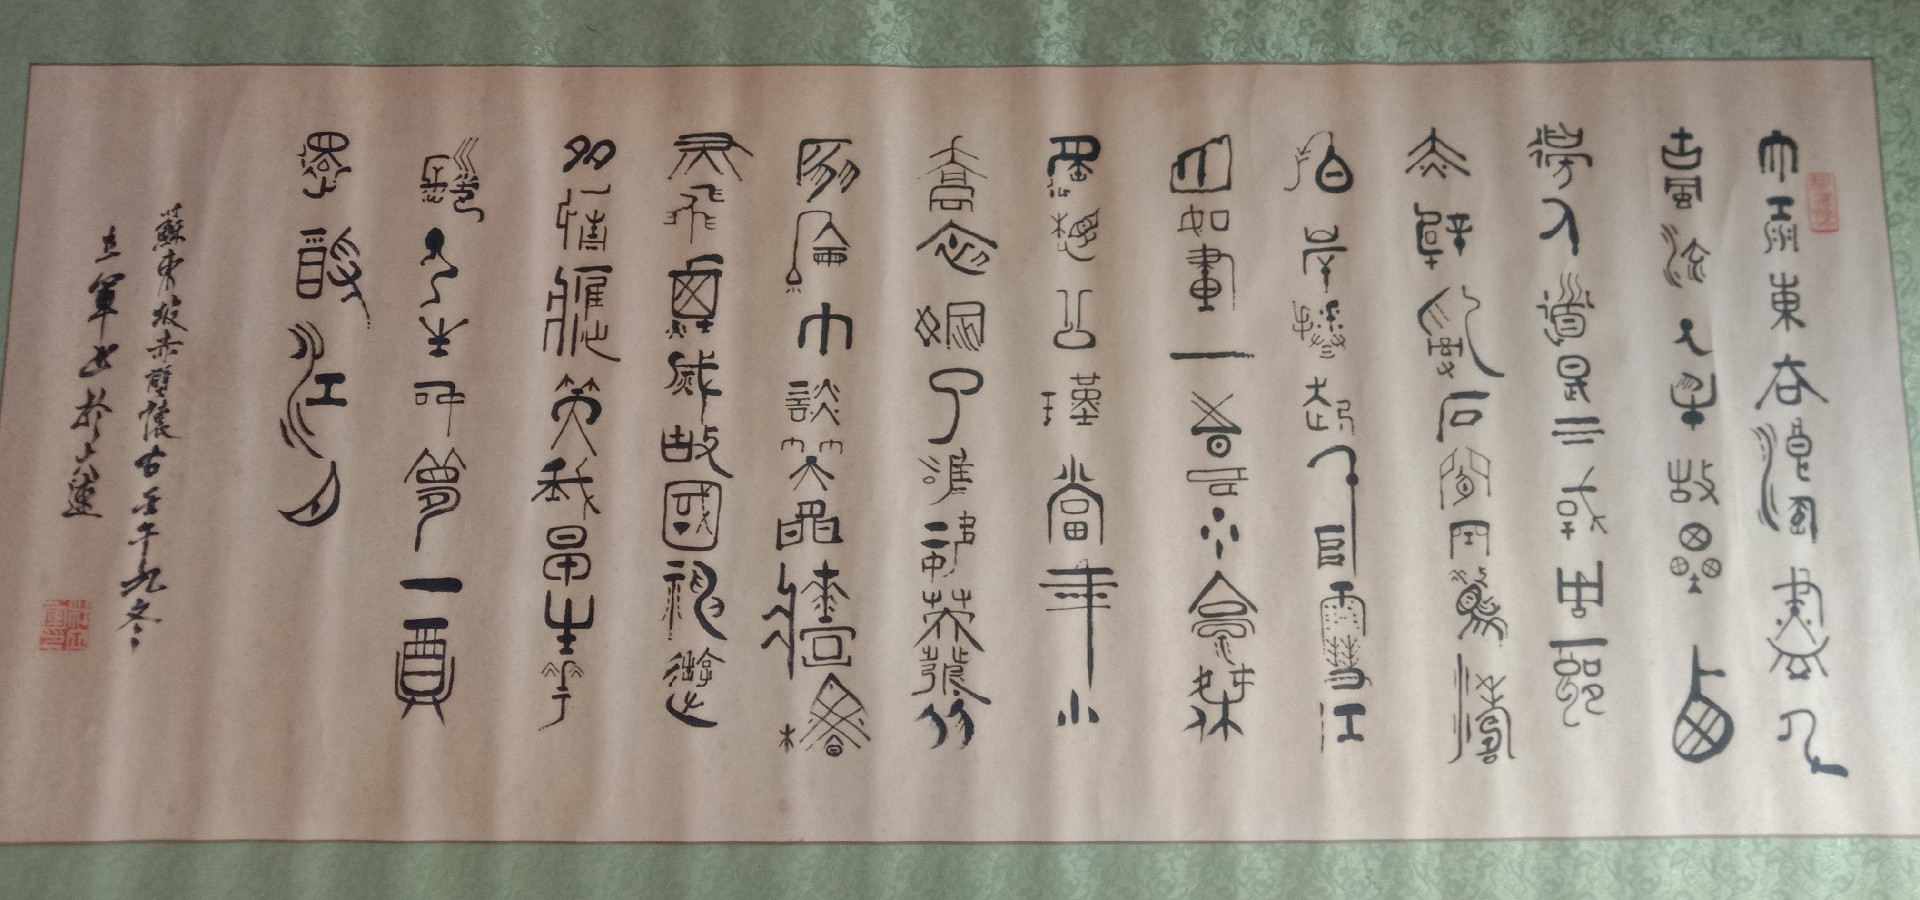 大江東去浪淘盡千
古風流人物故壘西
邊人道是三國周郎
赤壁亂石驚濤
拍岸捲起千堆雪江
山如畫一時多少豪傑
遙想公瑾當年小
喬初嫁了雄姿英發羽
扇綸巾談笑間檣櫓
灰飛煙滅故國神遊
多情應笑我早生華
髮人生如夢一尊
還酹江月
蘇東坡赤壁懷古壬午九冬
立軍書於大連